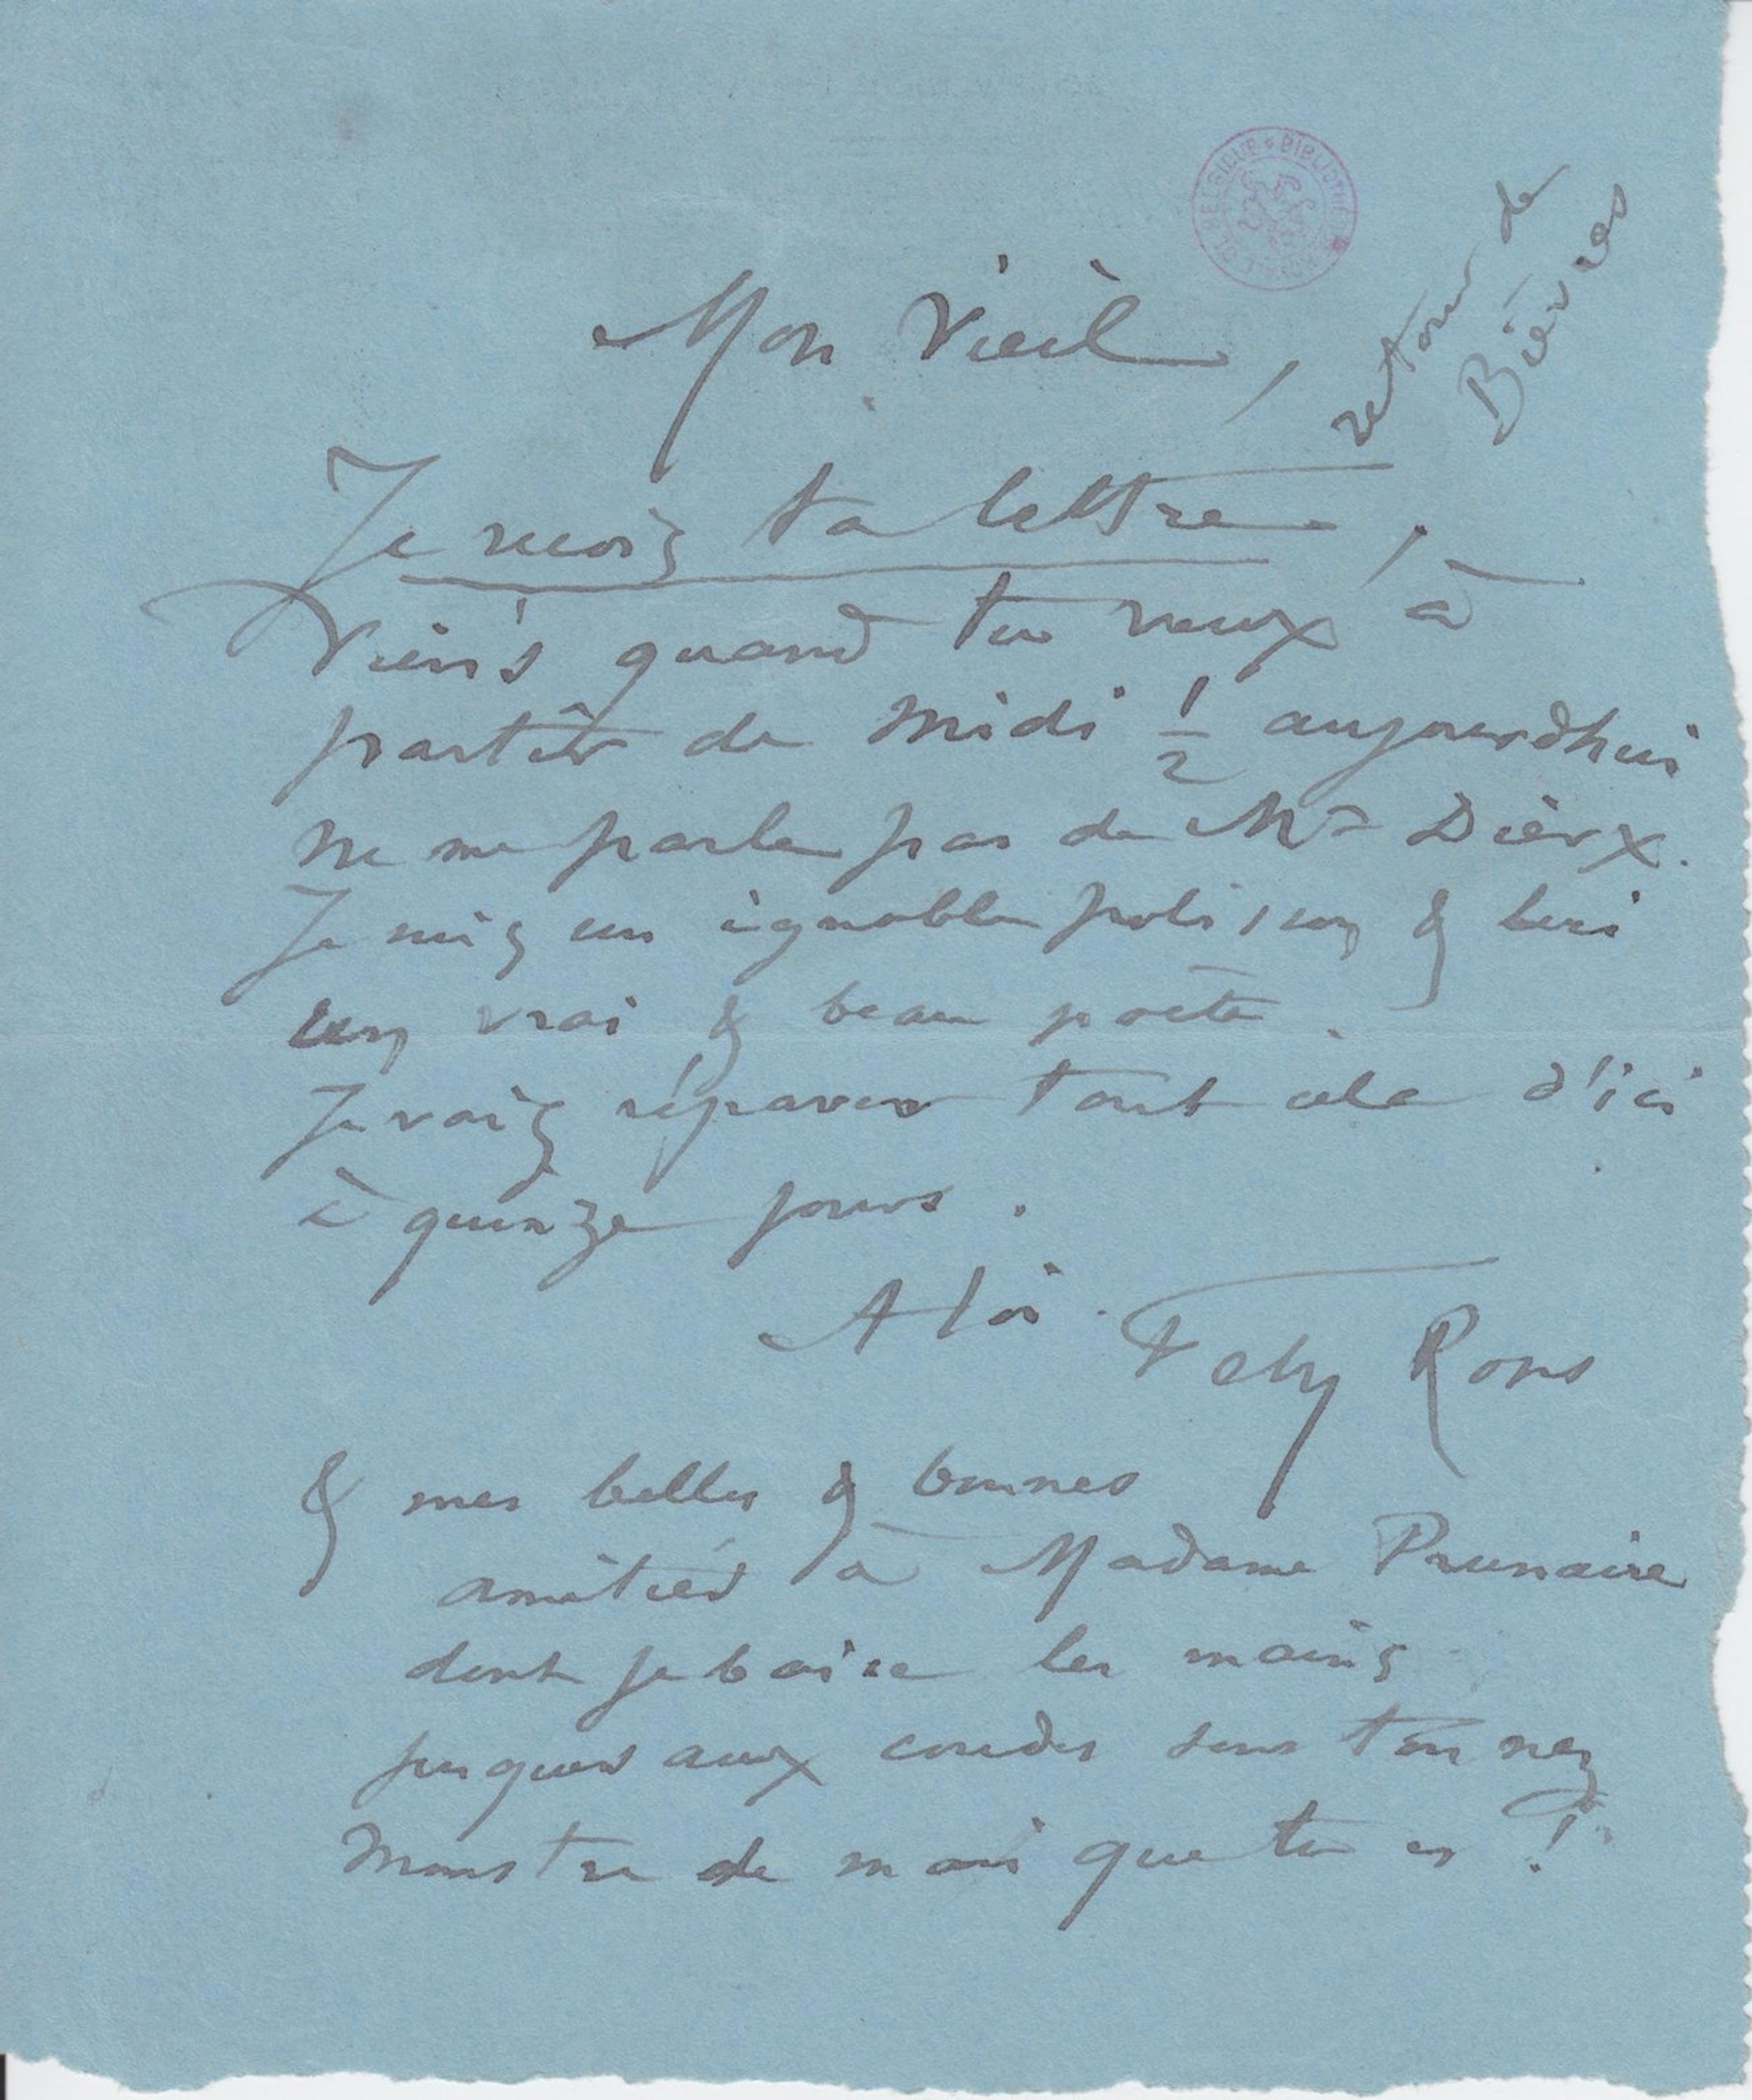 BIBLIOTHÈQUE ROYALE DE BELGIQUE
retour de
Bièvres
Mon Vieil,
Je reçois ta lettre,
Viens quand tu veux à
partir de midi 1/2 aujourdhui
ne me parle pas de Mr Dièrx.
Je suis un ignoble polisson & lui
un vrai & beau poëte.
Je vais réparer tout cela d'ici
à quinze jours.
A toi. Fély Rops
& mes belles & bonnes
amitiés à Madame Prunaire
dont je baise les mains
jusques aux coudes sous ton nez
Monstre de mari que tu es !